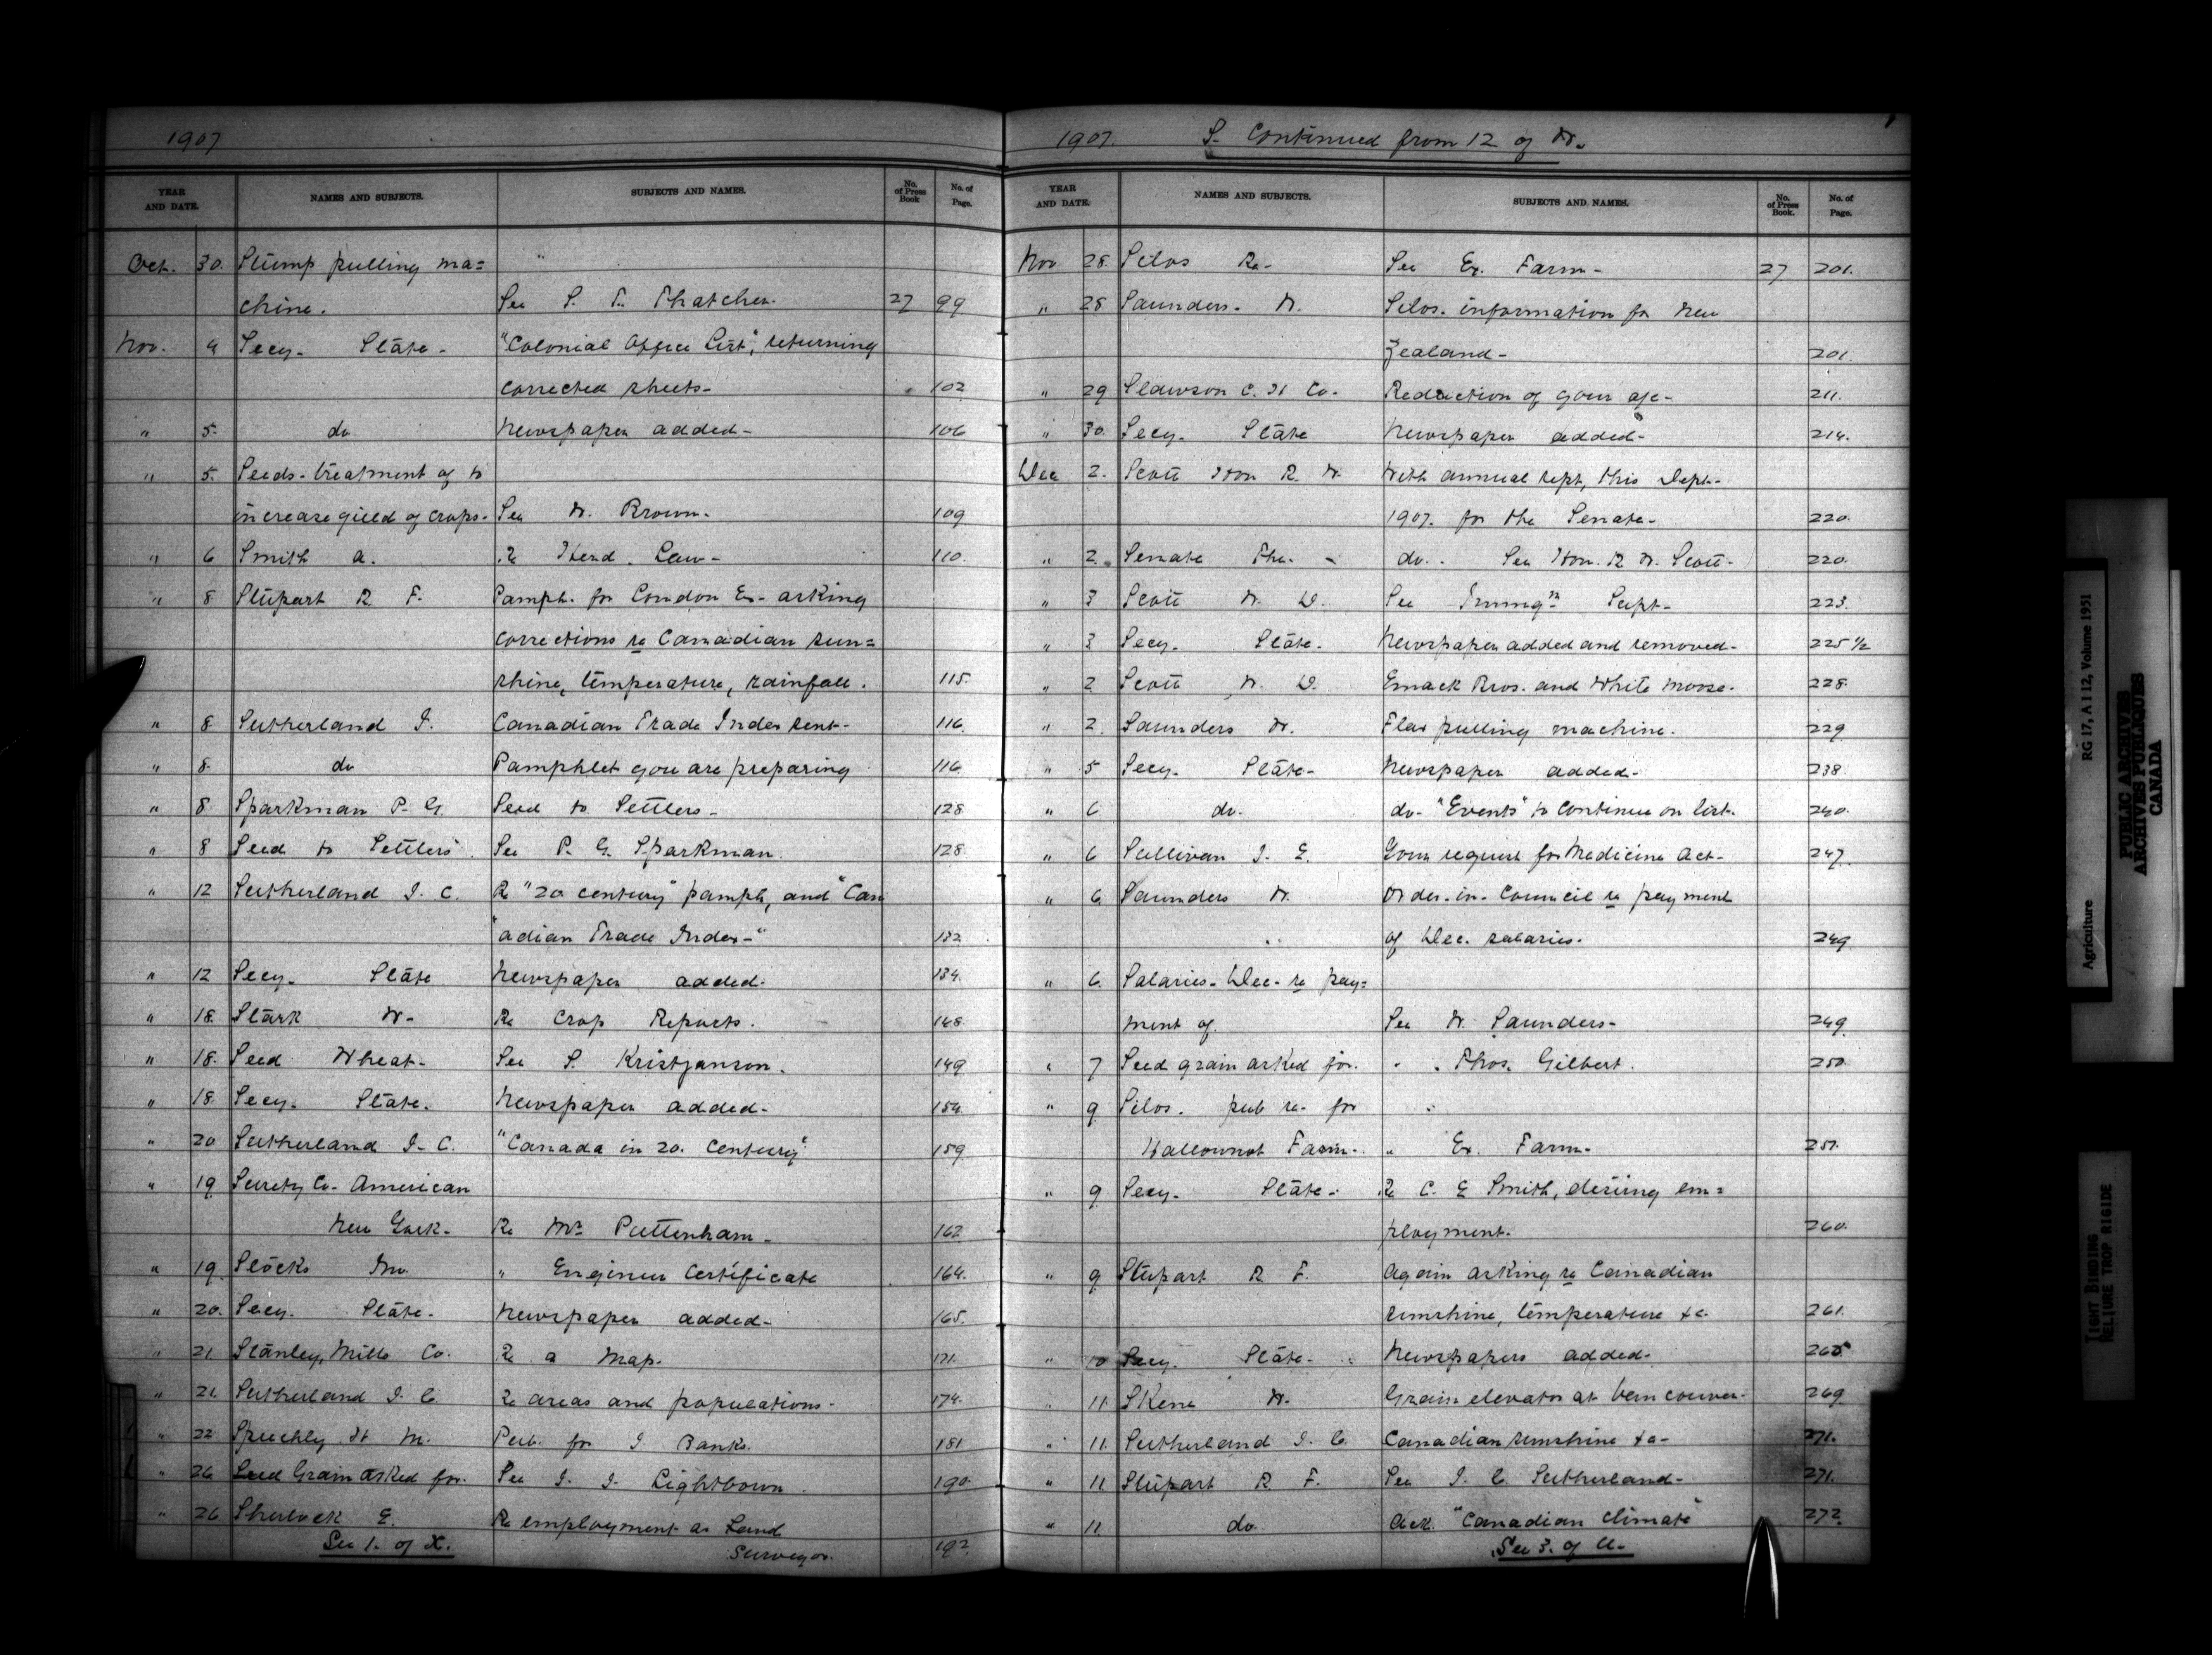 1907
YEAR AND DATE. NAMES AND SUBJECTS. SUBJECTS AND NAMES. No. of Press Book No. of Page.
Oct. 30. Stump pulling ma= "
chine. See S. T. Thatcher. 27 99
Nov. 4 Secy. State - "Colonial Office List", returning
corrected sheets - 102
" 5. do Newspaper added - 106
" 5. Seeds - treatment of to
increase yield of crops - See W. Brown - 109
" 6 Smith A. Re Herd Law - 110.
" 8 Stupart R. F. Pamph. for London Ex - asking
corrections re Canadian sun=
shine, temperature, rainfall. 115.
" 8. Sutherland J. Canadian Trade Index sent - 116.
" 8. do Pamphlet you are preparing 116
" 8 Sparkman P. G. Seed to Settlers - 128
" 8 Seed to Settlers. See P. G. Sparkman. 128.
" 12 Sutherland J. C. Re "20 century" pamph, and "Can
"adian Trade Index -" 132
" 12 Secy. State Newspaper added. 134.
" 18. Stark W - Re Crop Reports. 148.
" 18. Seed Wheat - See S. Kristjanson. 149
" 18. Secy. State. Newspaper added - 154.
" 20 Sutherland J. C. "Canada in 20. Century" 159.
" 19 Surety Co - American
New York - Re Mr. Puttenham - 162
" 19. Stocks Jno. " Engineer Certificate 164.
" 20. Secy. State - Newspaper added - 165.
" 21 Stanley, Mills Co. Re a Map. 171.
" 21. Sutherland J. C. Re areas and populations - 174.
" 22 Speechly H M. Pub. for J Banks. 181
" 26 Seed Grain asked for. See J. J. Lightbown. 190.
" 26 Sherlock E. Re employment as Land
See 1. of X. Surveyor. 192
1907. S - Continued from 12 of W.
YEAR AND DATE. NAMES AND SUBJECTS. SUBJECTS AND NAMES. No. of Press Book. No. of Page.
Nov 28. Silos Re - See Ex. Farm - 27 201.
" 28 Saunders - W. Silos - information for New
Zealand - 201.
" 29 Slawson C. H Co - Reduction of your a/c - 211.
" 30. Secy. State Newspaper added - 214.
Dec 2. Scott Hon R. W. With annual rept, this Dept -
1907. for the Senate - 220.
" 2. Senate The - do. See Hon. R W. Scott - 220.
" 3 Scott W. D. See Immign Supt - 223.
" 3 Secy. State - Newspaper added and removed - 225 1/2
" 2 Scott W. D. Emack Bros. and White Moose - 228.
" 2. Saunders W. Flax pulling machine. 229
" 5 Secy. State - Newspaper added - 238.
" 6 do. do - "Events" to continue on list. 240.
" 6 Sullivan J. E. Your request for Medicine Act - 247.
" 6. Saunders W. Order - in - Council re payment
of Dec. salaries. 249
" 6. Salaries - Dec - re pay=
ment of. See W. Saunders - 249.
" 7 Seed grain asked for. " Thos. Gilbert. 250.
" 9 Silos - pub re - for "
Farm - " Ex. Farm - 251.
" 9 Secy. State - Re C. E Smith, desiring em=
ployment. 260.
" 9 Stupart R F. Again asking re Canadian
sunshine, temperature &c. 261.
" 10 Secy. State - Newspapers added - 265
" 11. Skene W. Grain elevator at Vancouver - 269
" 11. Sutherland J. C. Canadian sunshine &c - 271.
" 11 Stupart R F. See J. C. Sutherland - 271.
" 11. do. Ack. "Canadian climate" 272.
See 3. of U.
Agriculture RG 17, A I 12, Volume 1951
PUBLIC ARCHIVES
ARCHIVES PUBLIQUES
CANADA
TIGHT BINDING
RELIURE TROP RIGIDE